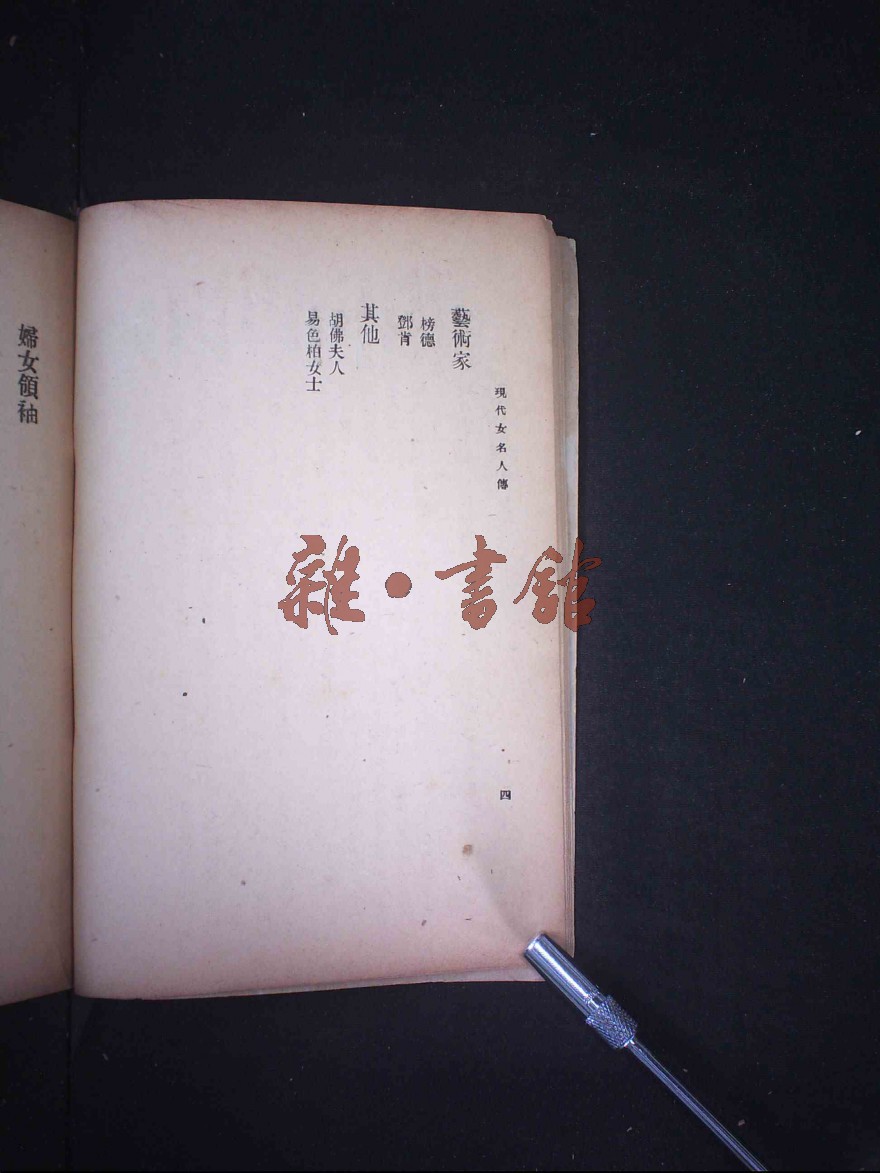 現代女名人傳
四
藝術家
榜德
鄧肯
其他
胡佛夫人
易色柏女士
婦女領袖
雜·書館